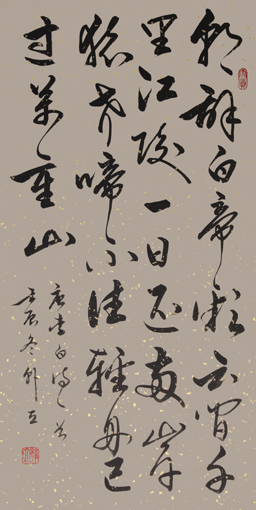 朝辭白帝彩雲間千
里江陵一日還兩岸
猿聲啼不住輕舟已
過萬重山
唐李白詩一首
壬辰冬